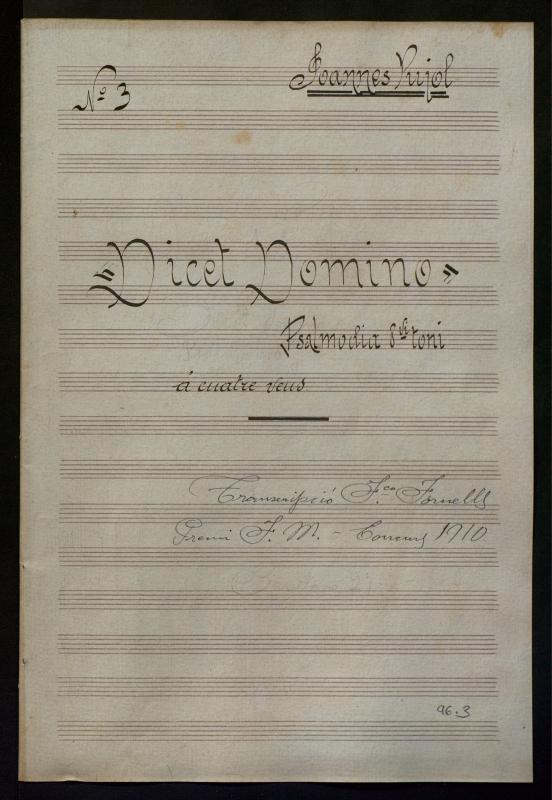 Joannes Pujol
Nº 3
«Dicet Domino»
Psalmodia 8vi toni
á cuatre veus
Transcripció F.co Fornells
Premi F. M. - Concurs 1910
96.3